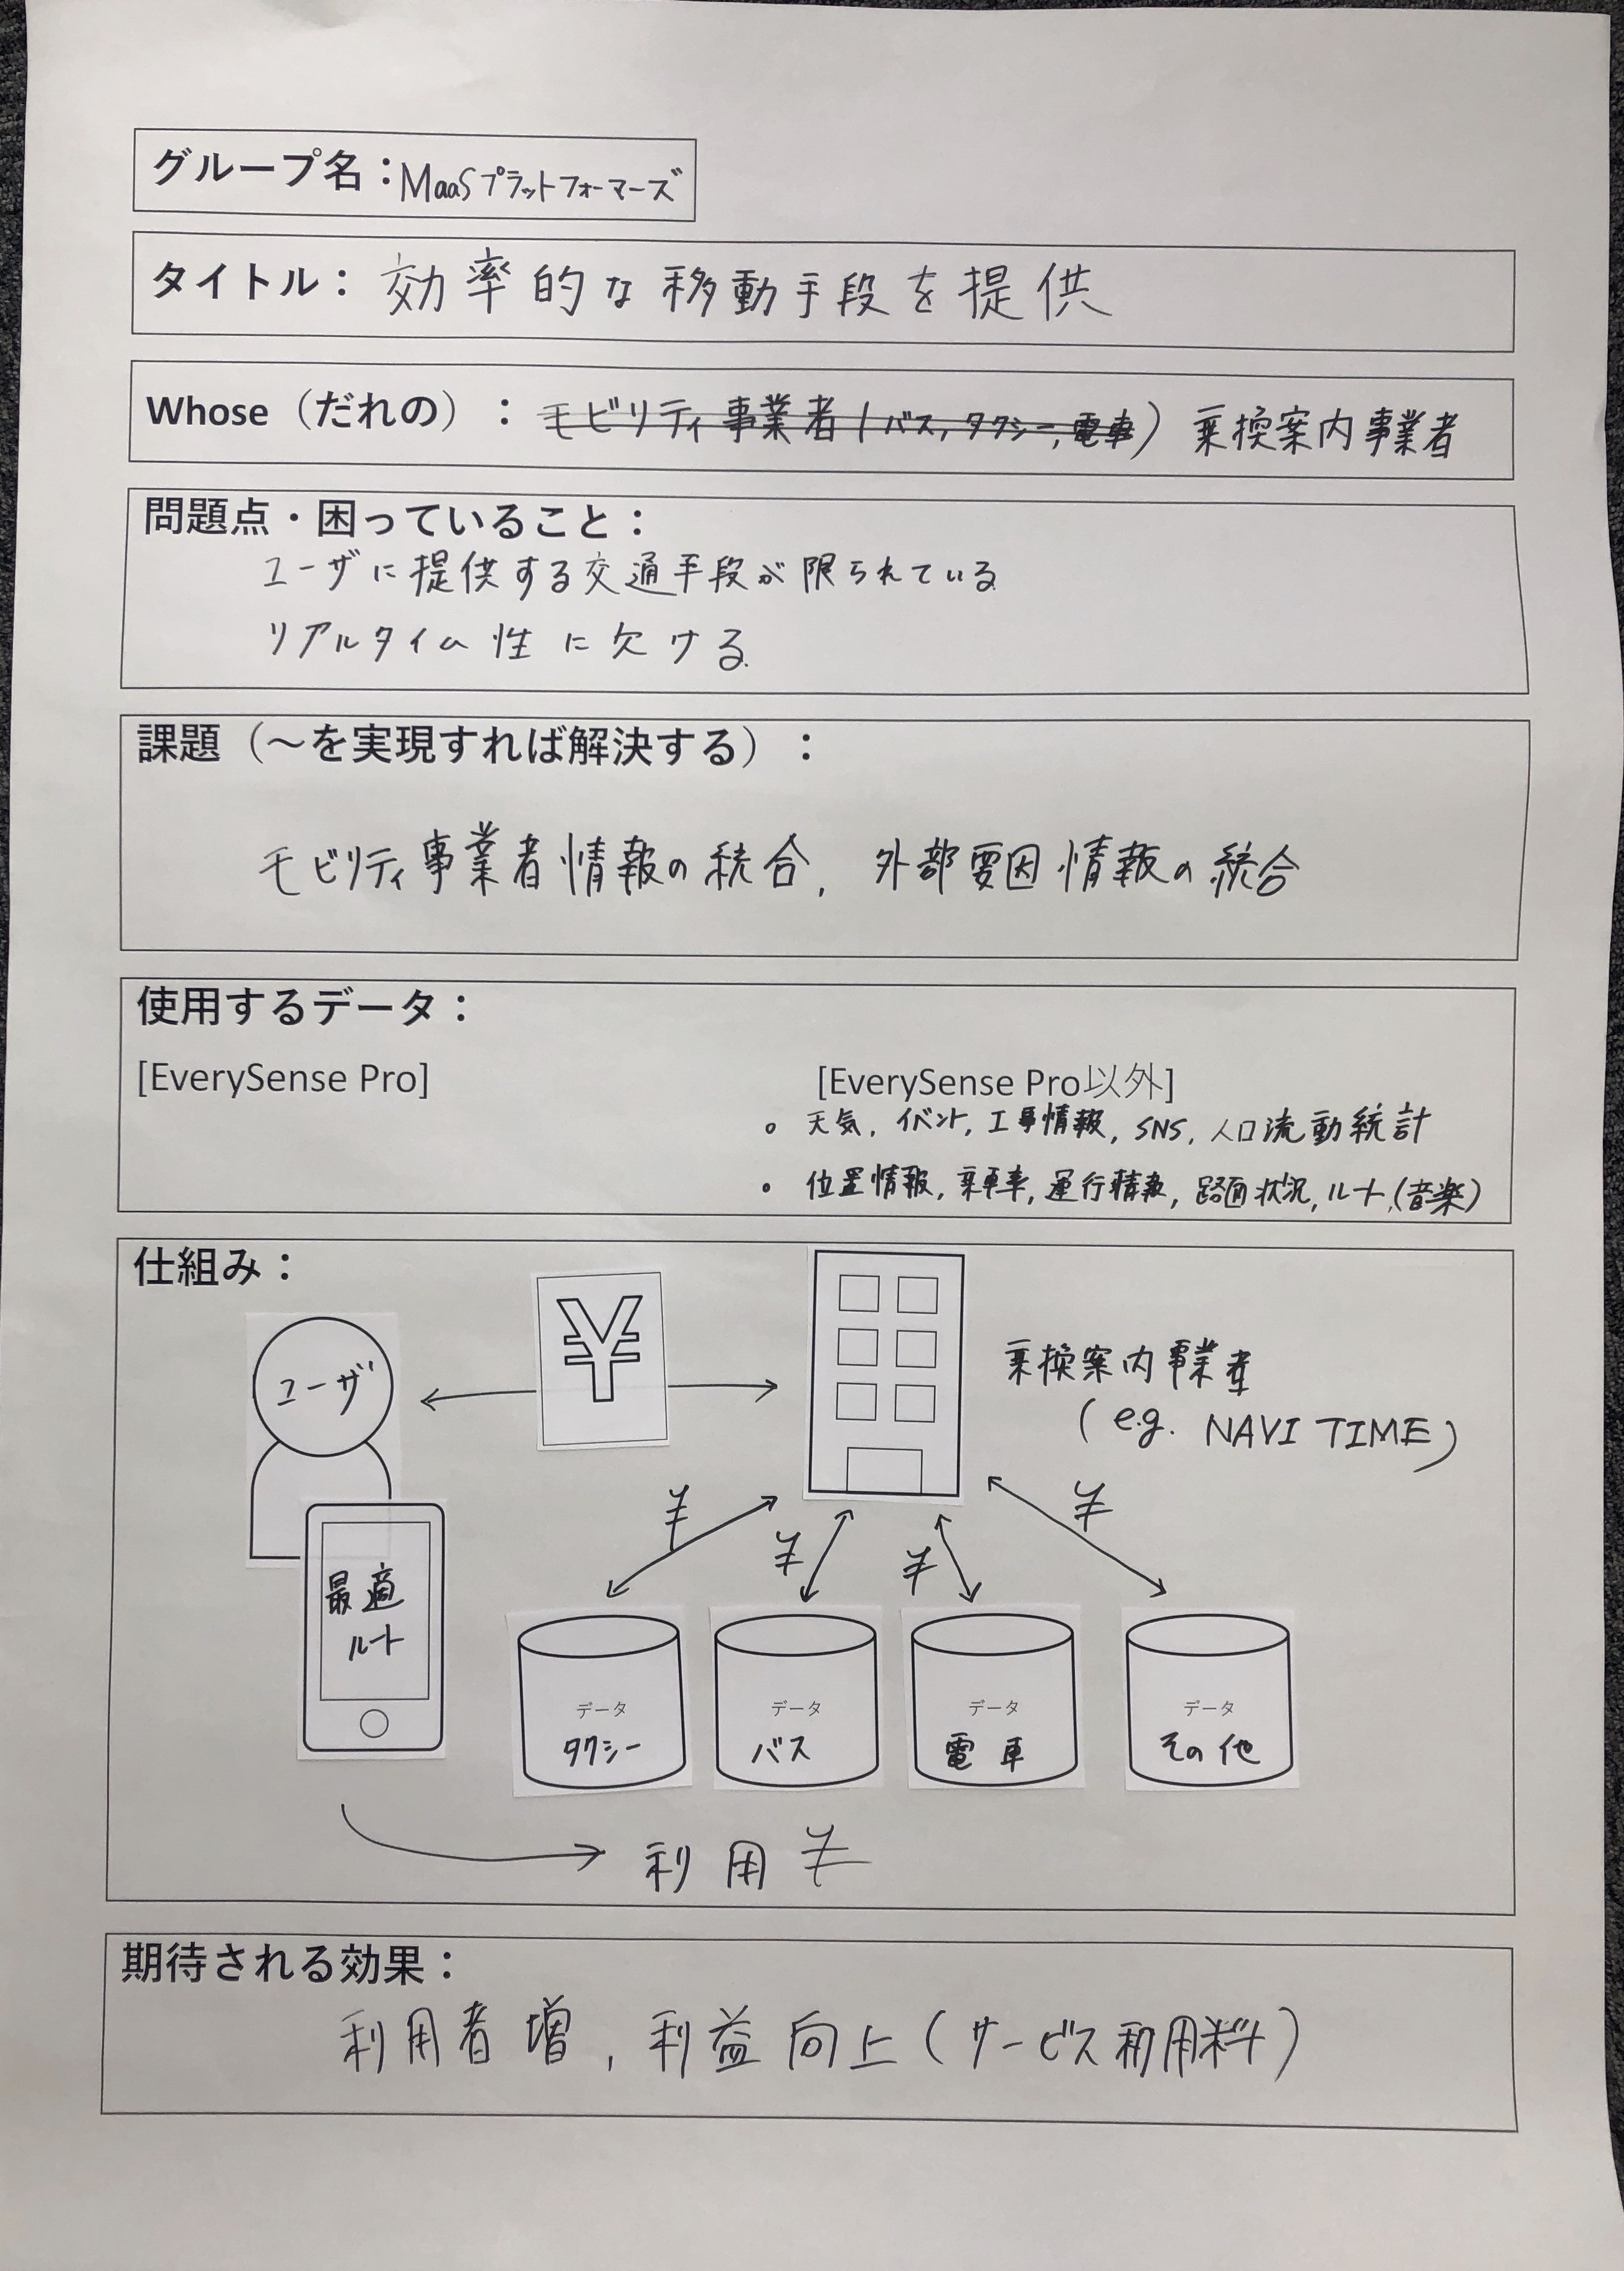 グループ名：MaaSプラットフォーマーズ
タイトル： 効率的な移動手段を提供
Whose（だれの）： モビリティ事業者(バス,タクシー,電車) 乗換案内事業者
問題点・困っていること：
ユーザに提供する交通手段が限られている
リアルタイム性に欠ける
課題（～を実現すれば解決する）：
モビリティ事業者情報の統合, 外部要因情報の統合
使用するデータ：
[EverySense Pro]
[EverySense Pro以外]
。天気, イベント, 工事情報, SNS, 人口流動統計
。位置情報, 乗車率, 運行情報, 路面状況, ルート,(音楽)
仕組み：
ユーザ
¥
乗換案内事業者
(e.g. NAVI TIME)
¥
¥
¥
¥
最適
ルート
データ
タクシー
データ
バス
データ
電車
データ
その他
利用 ¥
期待される効果：
利用者増, 利益向上(サービス利用料)